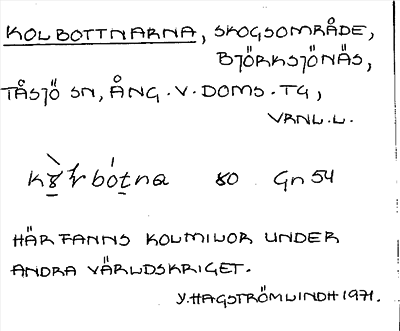 KOLBOTTNARNA, SKOGSOMRÅDE,
BJÖRKSJÖNÄS,
TÅSJÖ SN, ÅNG. V. DOMS. TG,
VRNL. L.
80 Gn 54
HÄR FANNS KOLMILOR UNDER
ANDRA VÄRLDSKRIGET.
Y. HAGSTRÖMLINDH 1971.